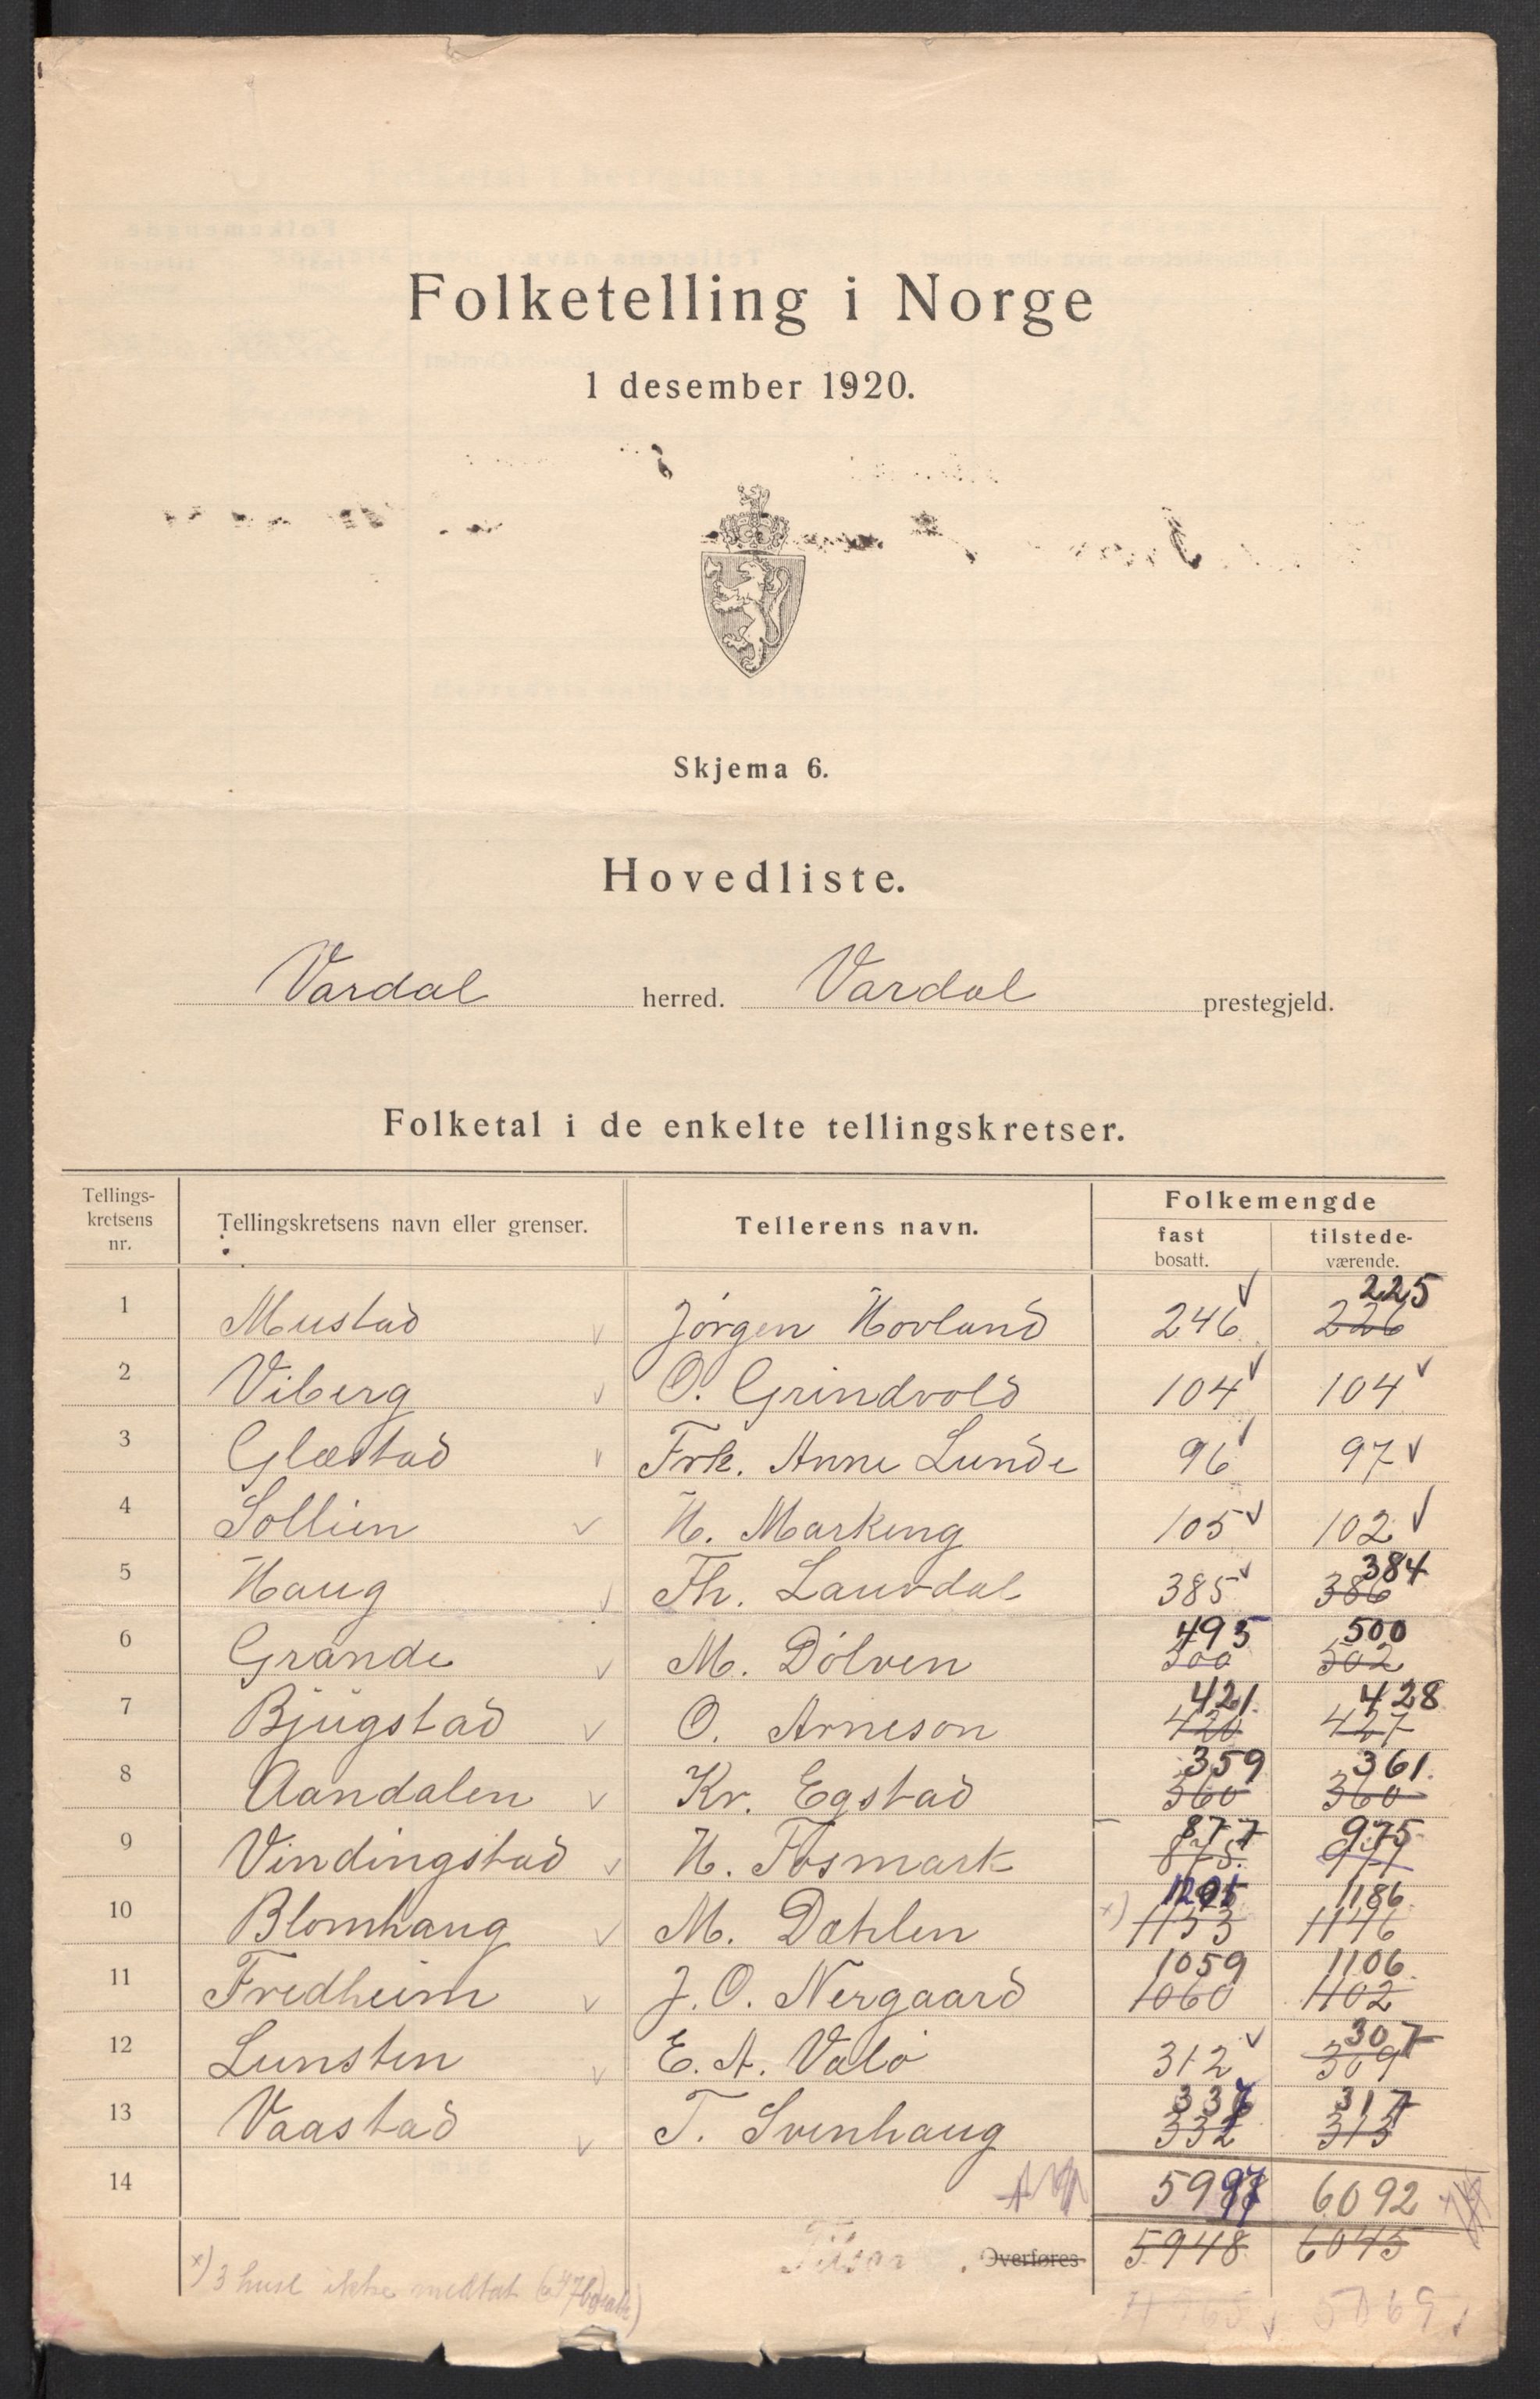 Folketelling i Norge
1 desember 1920.
Skjema 6.
Hovedliste.
Vardal herred. Vardal prestegjeld.
Folketal i de enkelte tellingskretser.
Tellings-
kretsens
nr.
Tellingskretsens navn eller grenser.
Tellerens navn.
Folkemengde
fast
bosatt.
tilstede-
værende.
225
1 Mustad Jørgen Hovland 246 226
2 Viberg O. Grindvold 104 104
3 Glæstad Frk. Anne Lunde 96 97
4 Sollien H. Markeng 105 102
384
5 Haug Th. Laurdal 385 386
495 500
6 Grande M. Dølven 500 502
421 428
7 Bjugstad O. Arneson 420 427
359 361
8 Aandalen Kr. Egstad 360 360
877 975
9 Vindingstad H. Fosmark 875 977
1201 1186
10 Blomhaug M. Dæhlen x) 1153 1146
1059 1106
11 Fredheim J. O. Nergaard 1060 1102
307
12 Lunsten E. A. Valø 312 309
337 317
13 Vaastad T. Svenhaug 332 313
14 5997 6092
Overføres 5948 6045
x) 3 husl ikke medtat
5069